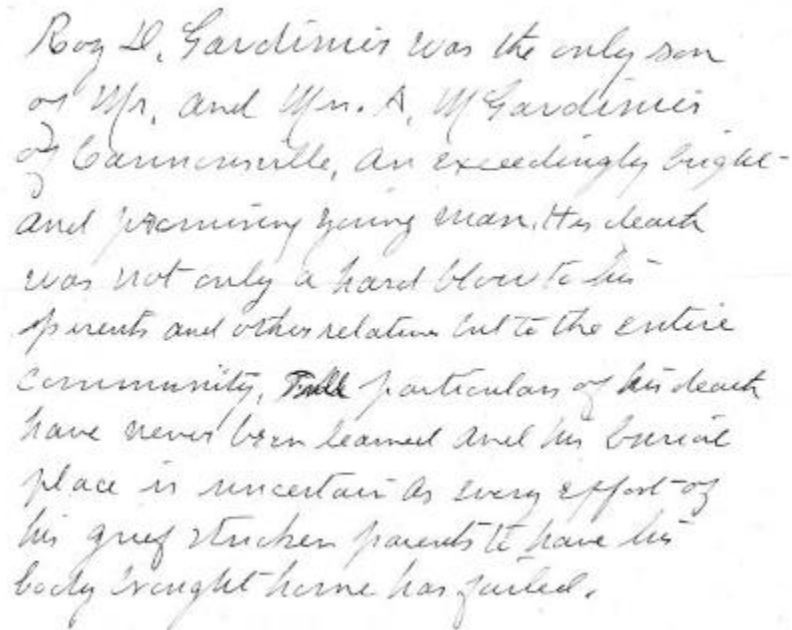 Roy D. Gardinier was the only son
of Mr. and Mrs. A. M Gardinier
of Cannonsville, an exceedingly bright
and promising young man. His death
was not only a hard blow to his
parents and other relatives but to the entire
community. Full particulars of his death
have never been learned and his burial
place is uncertain as every effort of
his grief stricken parents to have his
body brought home has failed.